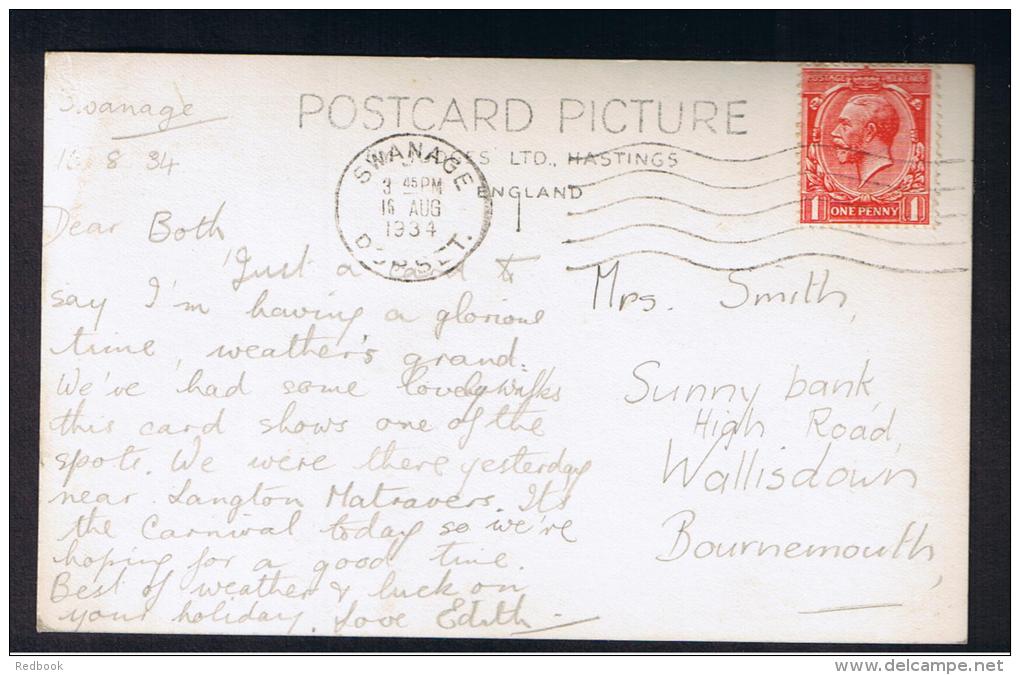 Swanage
8 34
POSTCARD PICTURE
LTD., HASTINGS
ENGLAND
SWANAGE
3 45PM
16 AUG
1934
DORSET.
POSTAGE REVENUE
1 ONE PENNY 1
Dear Both
Just a card to
say I'm having a glorious
time, weather's grand.
We've had some lovely walks
this card shows one of the
spots. We were there yesterday
near Langton Matravers. Its
the Carnival today so we're
hoping for a good time.
Best of weather & luck on
your holiday. Love Edith
Mrs. Smith,
Sunny bank,
High Road,
Wallisdown
Bournemouth,
Redbook
www.delcampe.net